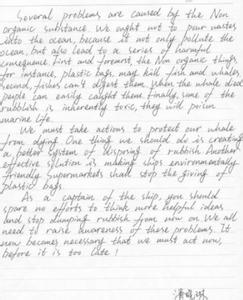 Several problems are caused by the Non
organic substance. We ought not to pour wastes
into the ocean, because it not only pollute the
ocean, but also lead to a series of harmful
consequence. First and foremost, the Non organic things,
for instance, plastic bags, may kill fish and whales.
Second, fishes can't digest them. When the whale died
People can easily caught them. Finally, some of the
rubblish is inherently toxic, they will poison
marine life.
We must take actions to protect our whale
from dying. One thing we should do is creating
a better system of disposing of rubbish. Another
effective solution is making ships environmentally-
friendly. Supermarkets shall stop the giving of
plastic bags.
As a captain of the ship, you should
spare no efforts to think more helpful ideas
and stop dumping rubbish from now on. We all
need to raise awareness of these problems. It
now becomes necessary that we must act now,
before it is too late!